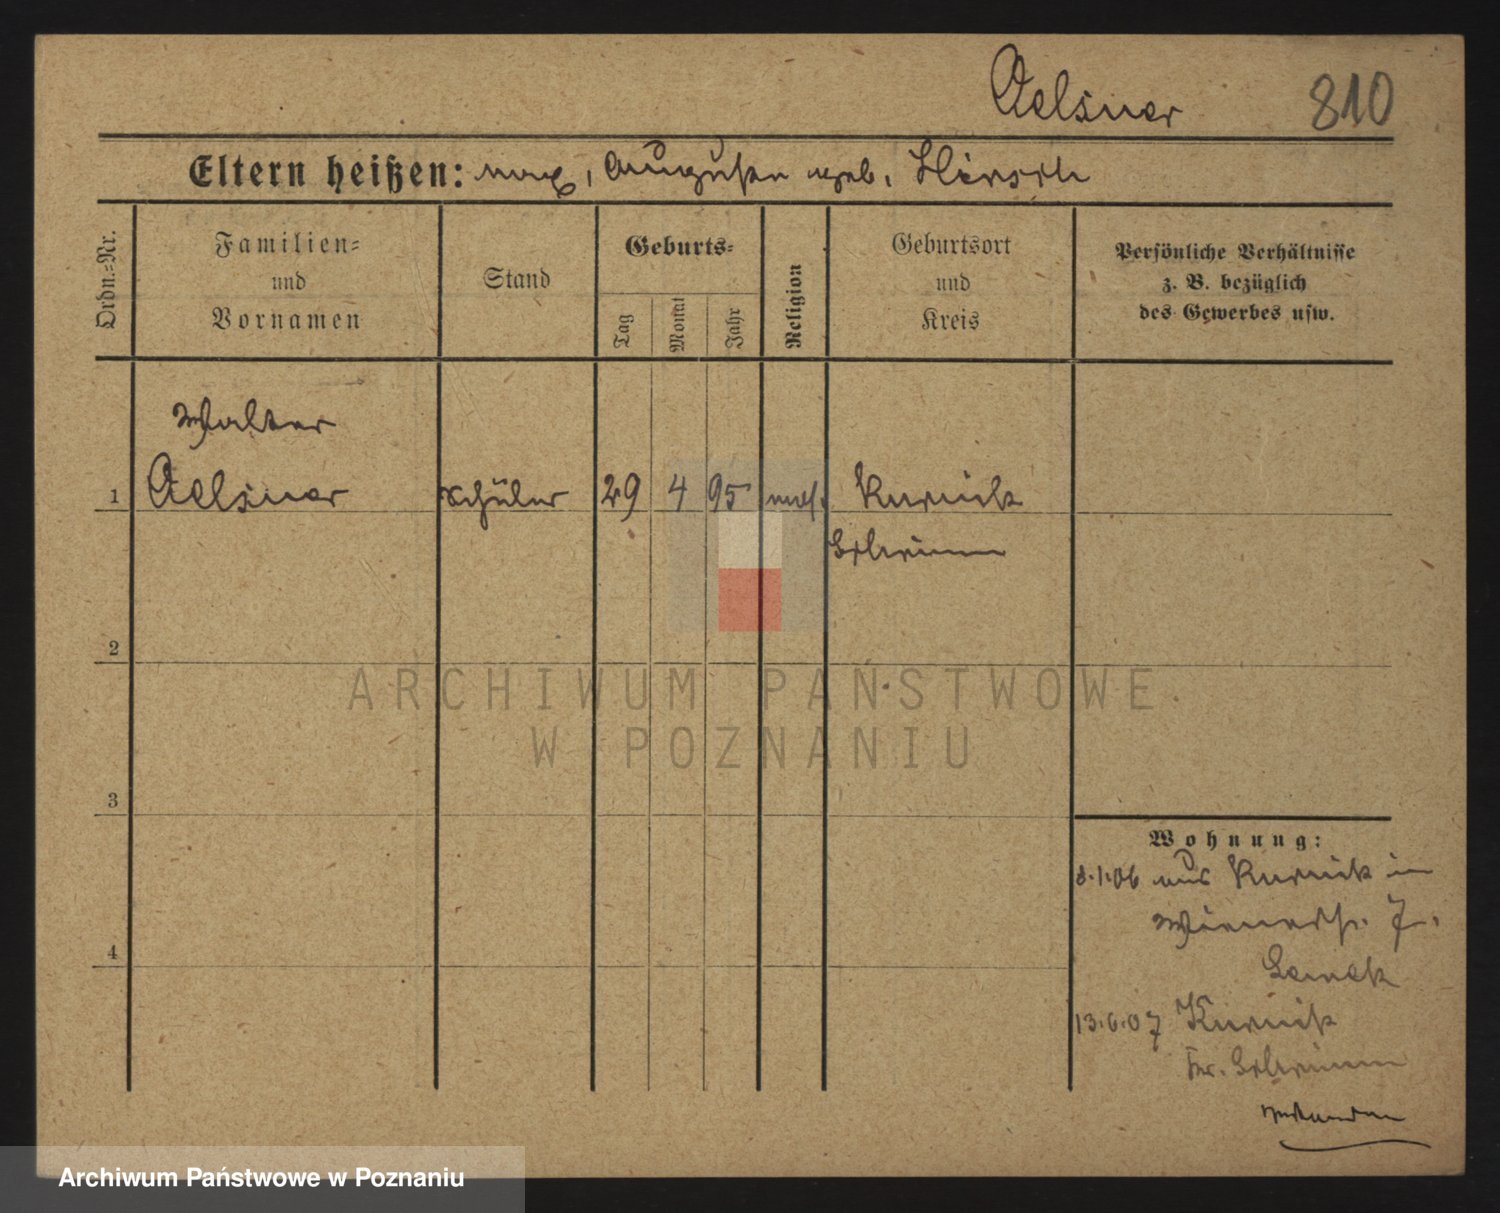 Oelsner 810
Eltern heißen: Max, Auguste geb. Hirsch
Ordn.-Nr.
Familien-
und
Vornamen
Stand
Geburts-
Tag
Monat
Jahr
Religion
Geburtsort
und
Kreis
Persönliche Verhältnisse
z. B. bezüglich
des Gewerbes usw.
Walter
1 Oelsner Schüler 29 4 95 mos. Kurnik
Schrimm
2
ARCHIWUM PAŃSTWOWE
W POZNANIU
3
Wohnung:
8.1.06 aus Kurnik in
Wienerstr. 7.
13.6.07 Kurnik
Kr. Schrimm
4
Archiwum Państwowe w Poznaniu